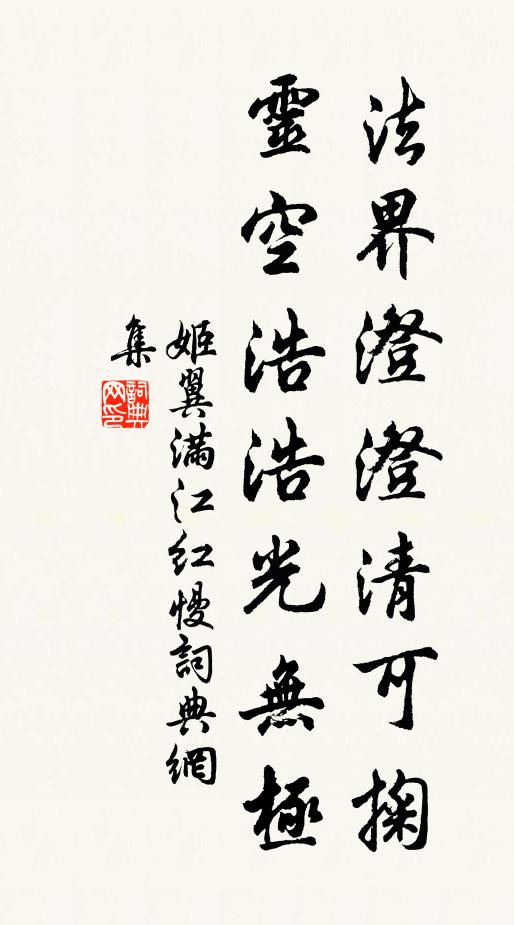 法界澄澄清可掬
靈空浩浩光無極
姬翼滿江紅慢詞典網
集
詞典網印